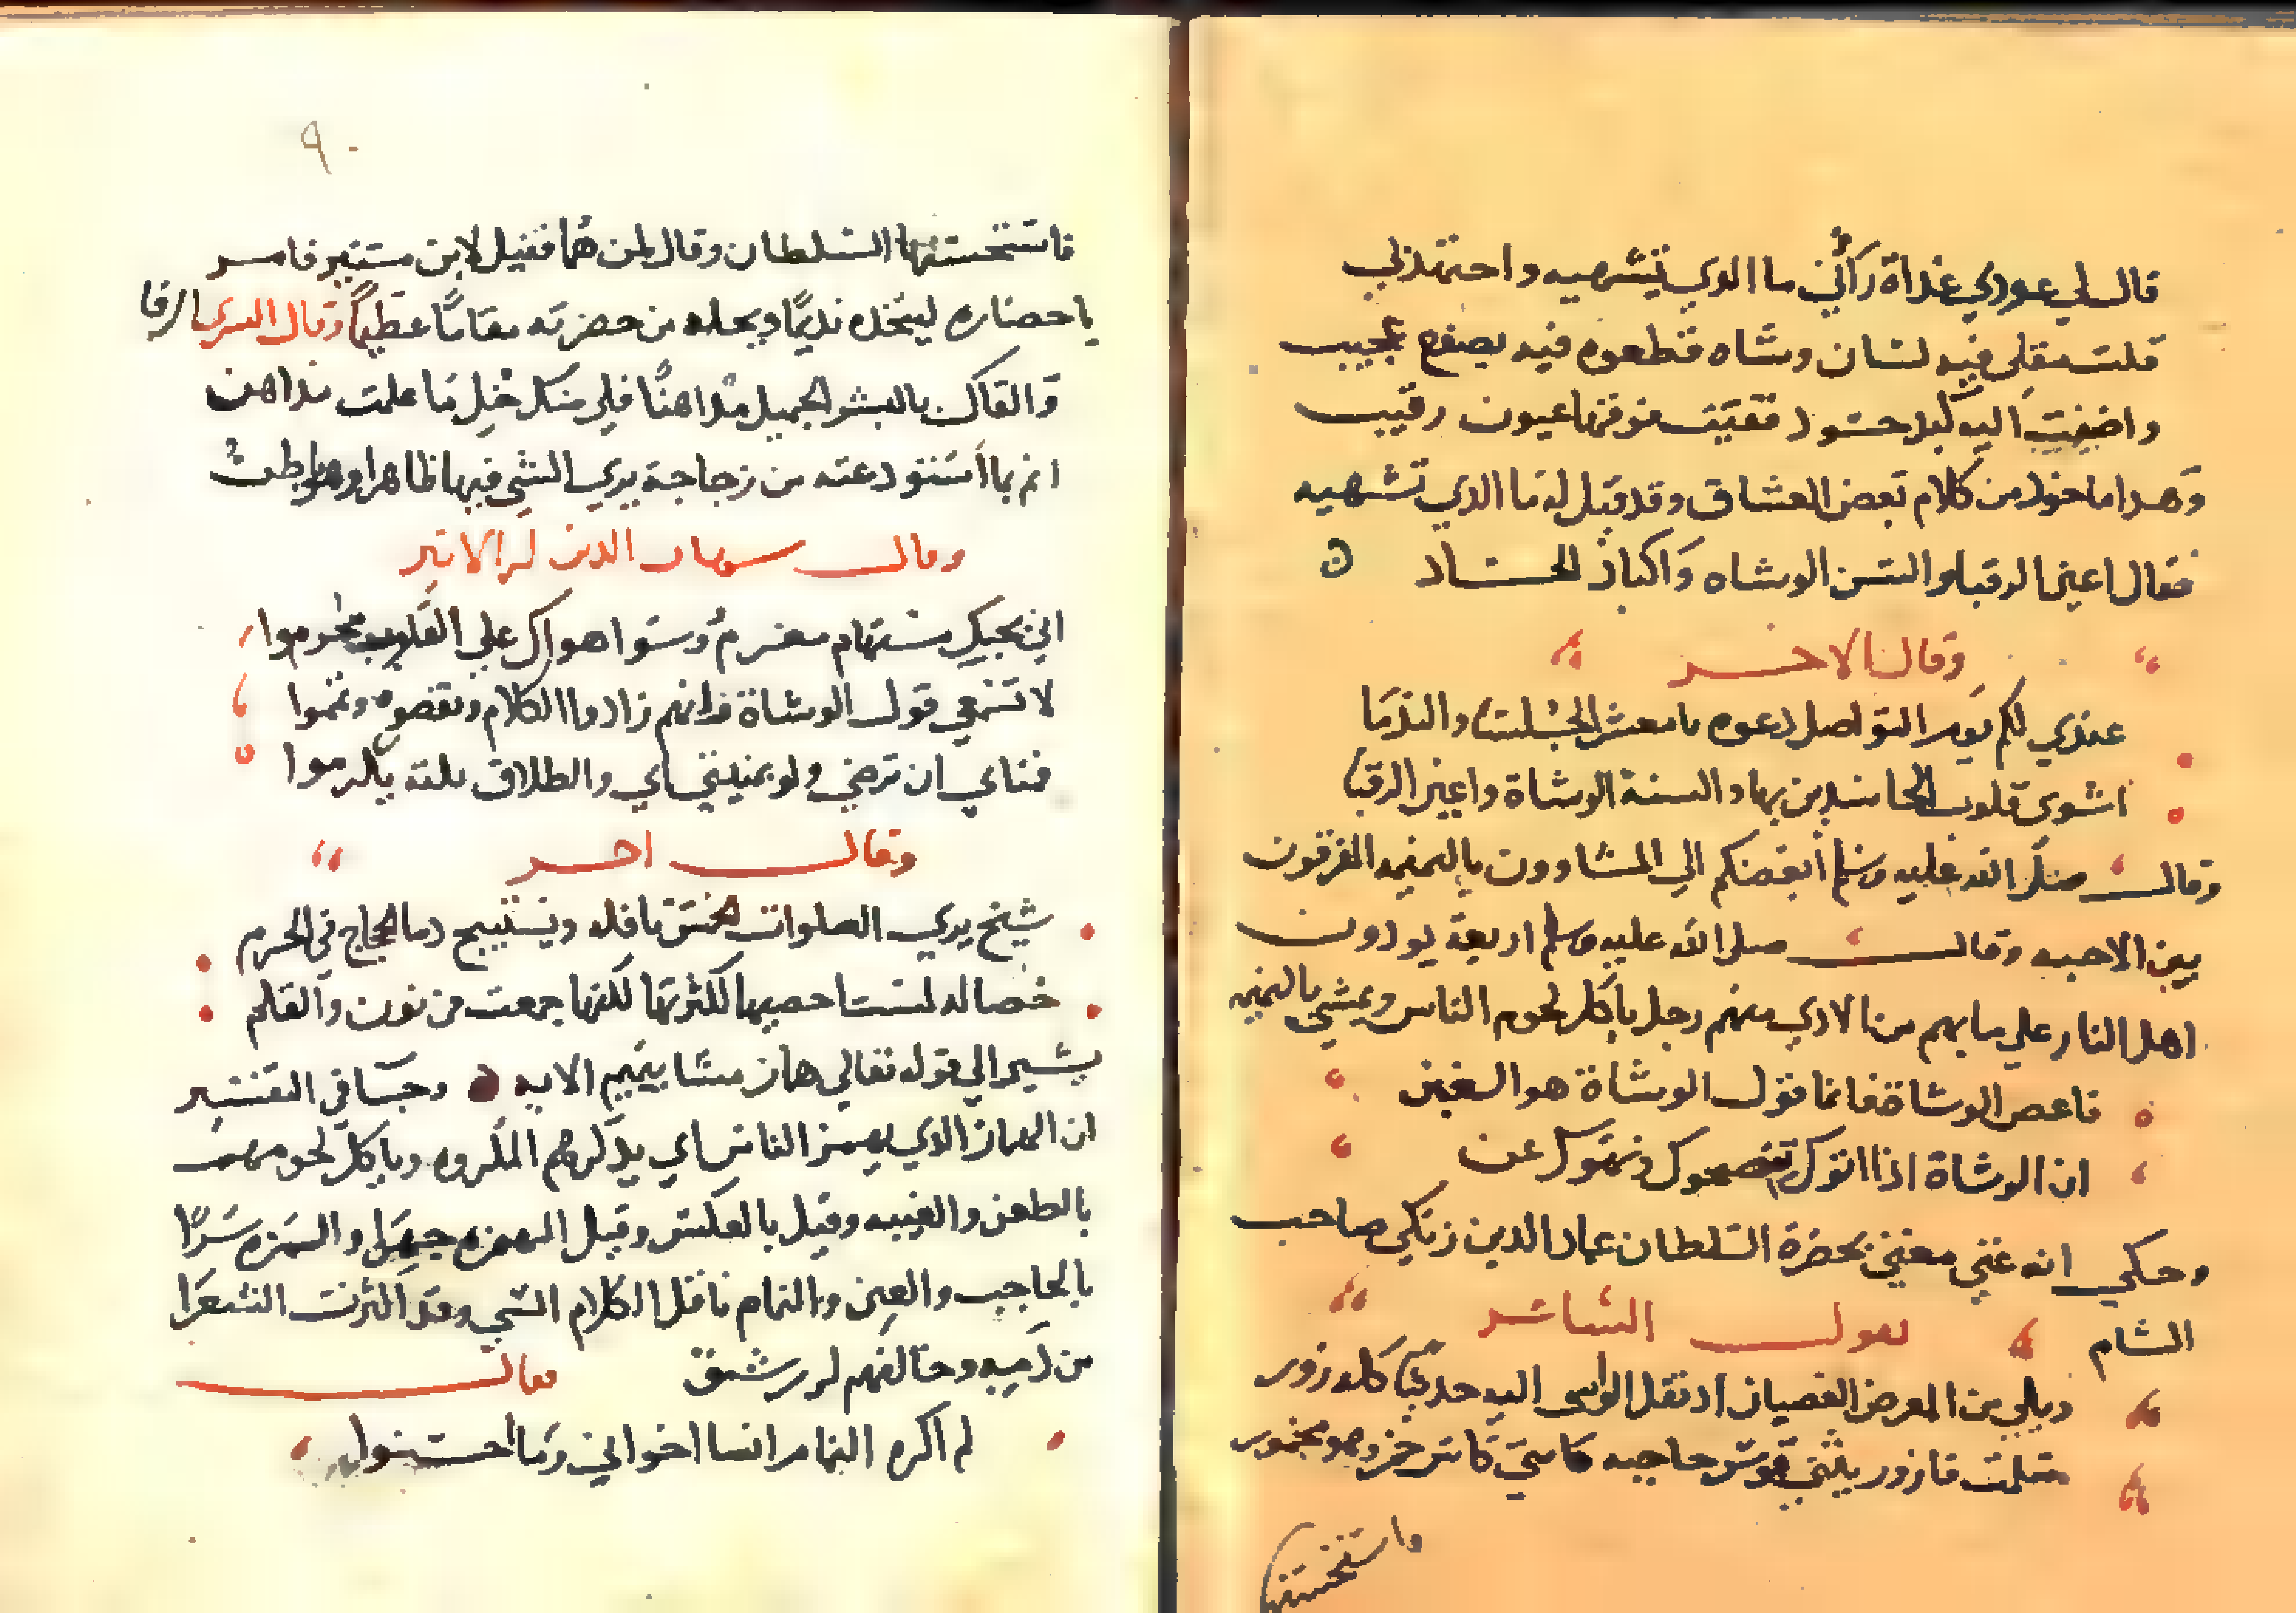 قال لي عودي غداة رأني ما الدي تشهيه واحتهد لي
قلت مقلي فيه لسان وشاه قطعوه فيه بصنع عجيب
واضفت اليه كبد حسود فقيت فوقها عيون رقيب
وهدا ماخود من كلام بعض العشاق وقد قيل له ما الدي تشهيه
فقال اعين الرقبا والسن الوشاه واكباد الحساد
وقال الاخر
عندي لكم يوم التواصل دعوه يا معشر الجلسا والندما
اشوي قلوب الحاسدين بها والسنة الوشاة واعين الرقبا
وقال صلى الله عليه وسلم أبغضكم الي المشاوون بالنميمه المفرقون
بين الاحبه وقال صلى الله عليه وسلم اربعة يودون
اهل النار علي ما بهم من الادي منهم رجل ياكل لحوم الناس ويمشي بالنميمه
فاعص الوشاة فانما قول الوشاة هو الغبن
ان الوشاة اذا اتوك تنصحوك ونهوك عن
وحكي انه غني مغني بحضرة السلطان عماد الدين زنكي صاحب
الشام بقول الشاعر
ويلي من المعرض الغضبان اد نقل الواشي اليه حديثا كله زور
سلمت فازور يثني قوس حاجبه كانني كاس خمر وهو مخمور
فاستحسنها
٩٠
فاستحسنها السلطان وقال لمن هما فقيل لابن منير فامر
باحضاره ليتخذه نديمًا ويجعله من حضرته مقامًا عظيمًا وقال السري الرفا
والقاك بالبشر الجميل مداهنًا فلي منك خل ما علمت مداهن
انم بما استودعته من زجاجة يري الشي فيها ظاهرا وهو باطن
وقال بهاء الدين بن الاثير
اني بحبك مستهام مغرم وسوا هواك علي القلوب محرموا
لا تسمعي قول الوشاة فانهم زادوا الكلام ونقصوه ونمموا
فمناي ان ترضي ولو بمنيتي اي والطلاق ثلثه يلزموا
وقال اخر
شيخ يري الصلوات الخمس نافله ويستبيح دما الحجاج في الحرم
خصاله لست احصيها لكثرتها لكنها جمعت من نون والقلم
يشير الي قوله تعالي هماز مشا بنميم الايه وجا في التفسير
ان الهماز الدي يهمز الناس اي يدكرهم المكروه وياكل لحومهم
بالطعن والغيبه وقيل بالعكس وقيل الهمزه جهرا والمزه سرًا
بالحاجب والعين والنمام ناقل الكلام السي وقد اكثرت الشعرا
من دميه وخالفهم ابن رشيق فقال
لم اكره النمام انسا اخواني وما احسنوا